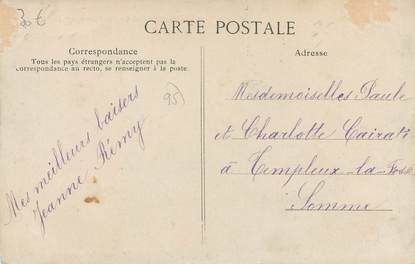 30 €
CARTE POSTALE
Correspondance
Tous les pays étrangers n'acceptent pas la
correspondance au recto, se renseigner à la poste
95)
Mes meilleurs baisers
Jeanne Rémy
Adresse
Mesdemoiselles Paule
et Charlotte
à Templeux-la-Fosse
Somme